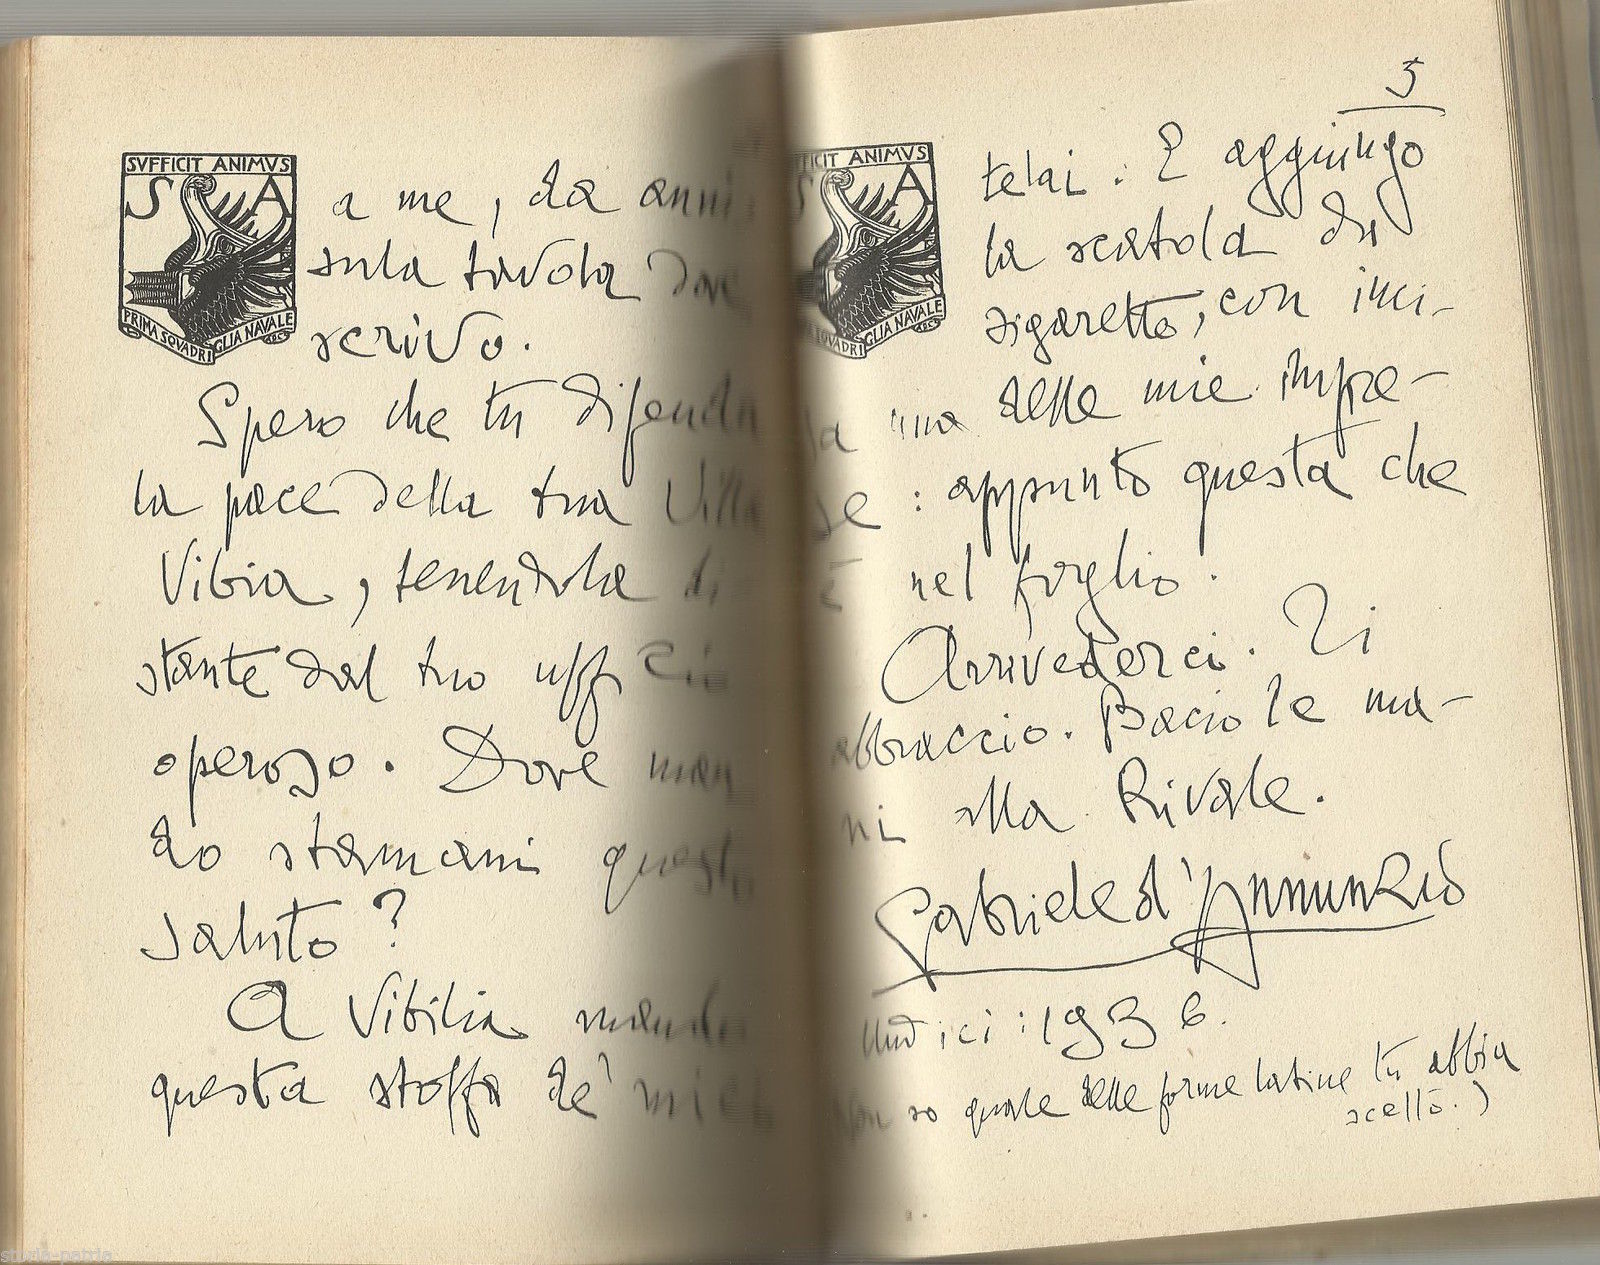 SVFFICIT ANIMVS
S A
PRIMA SQVADRIGLIA NAVALE
a me, da anni,
sula tavola dove
scrivo.
Spero che tu difenda
la pace della tua Villa
Vibia, tenendola di
stante dal tuo uffizio
operoso. Dove man
do stamani questo
saluto?
A Vibilia mando
questa stoffa de' miei
5
FICIT ANIMVS
S A
SQVADRIGLIA NAVALE
telai. E aggiungo
la scatola di
sigarette, con inci-
sa una delle mie impre-
se: appunto questa che
è nel foglio.
Arrivederci. Ti
abbraccio. Bacio le ma-
ni alla Rivale.
Gabriele d'Annunzio
: 1936.
non so quale delle forme latine tu abbia
scelto.)
storia-patria